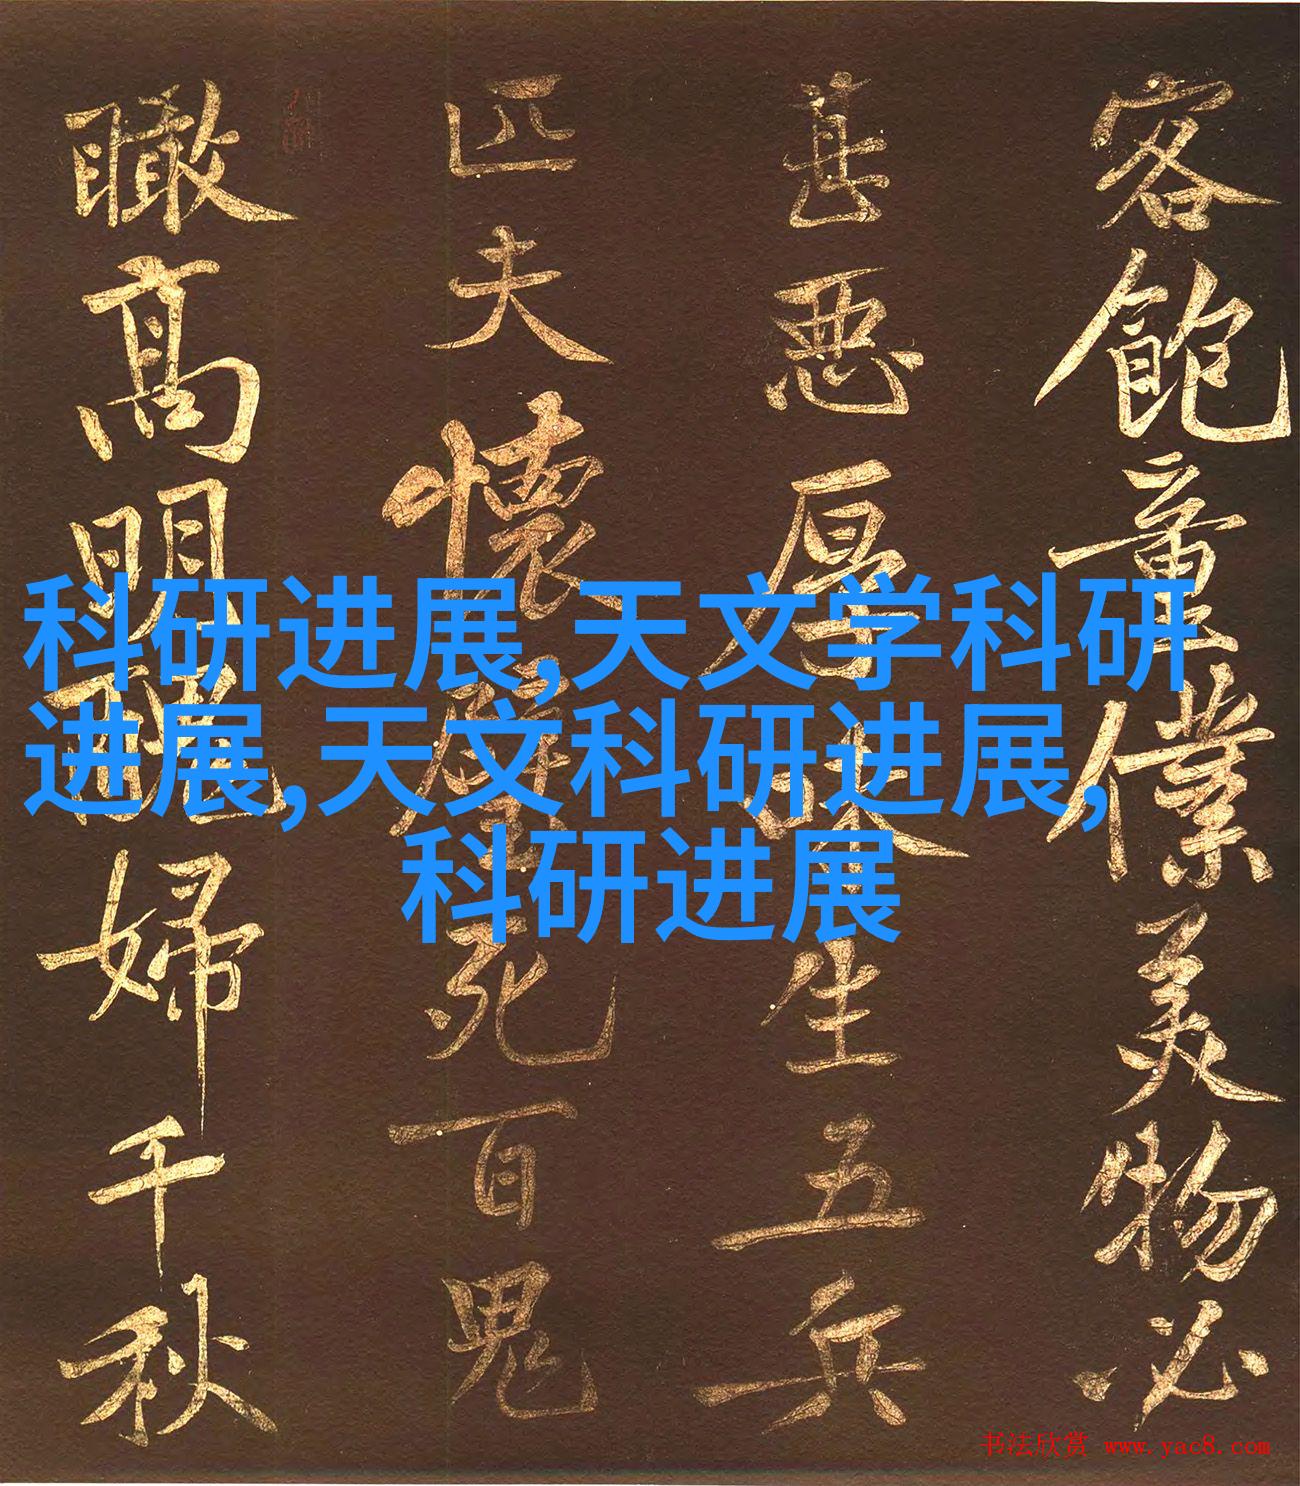 客飽童僕美物必
甚惡厚味生五兵
匹夫懷璧死百鬼
瞰高明醜婦千秋
科研进展,天文学科研
进展,天文科研进展,
科研进展
书法欣赏 www.yac8.com